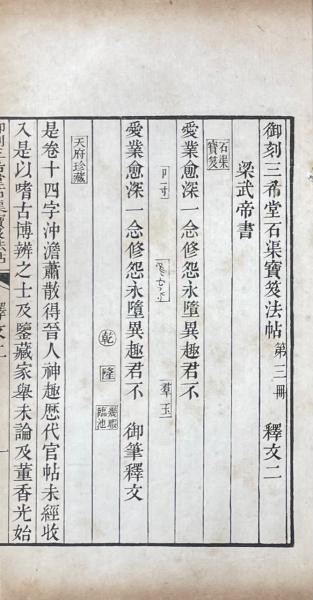 御刻三希堂石渠寶笈法帖 第三冊 釋文二
梁武帝書
石渠寶笈
愛業愈深一念修怨永墮異趣君不
羣玉
愛業愈深一念修怨永墮異趣君不 御筆釋文
乾 隆
天府珍藏
是卷十四字沖澹蕭散得晉人神趣歷代官帖未經收
入是以嗜古博辨之士及鑒藏家舉未論及董香光始